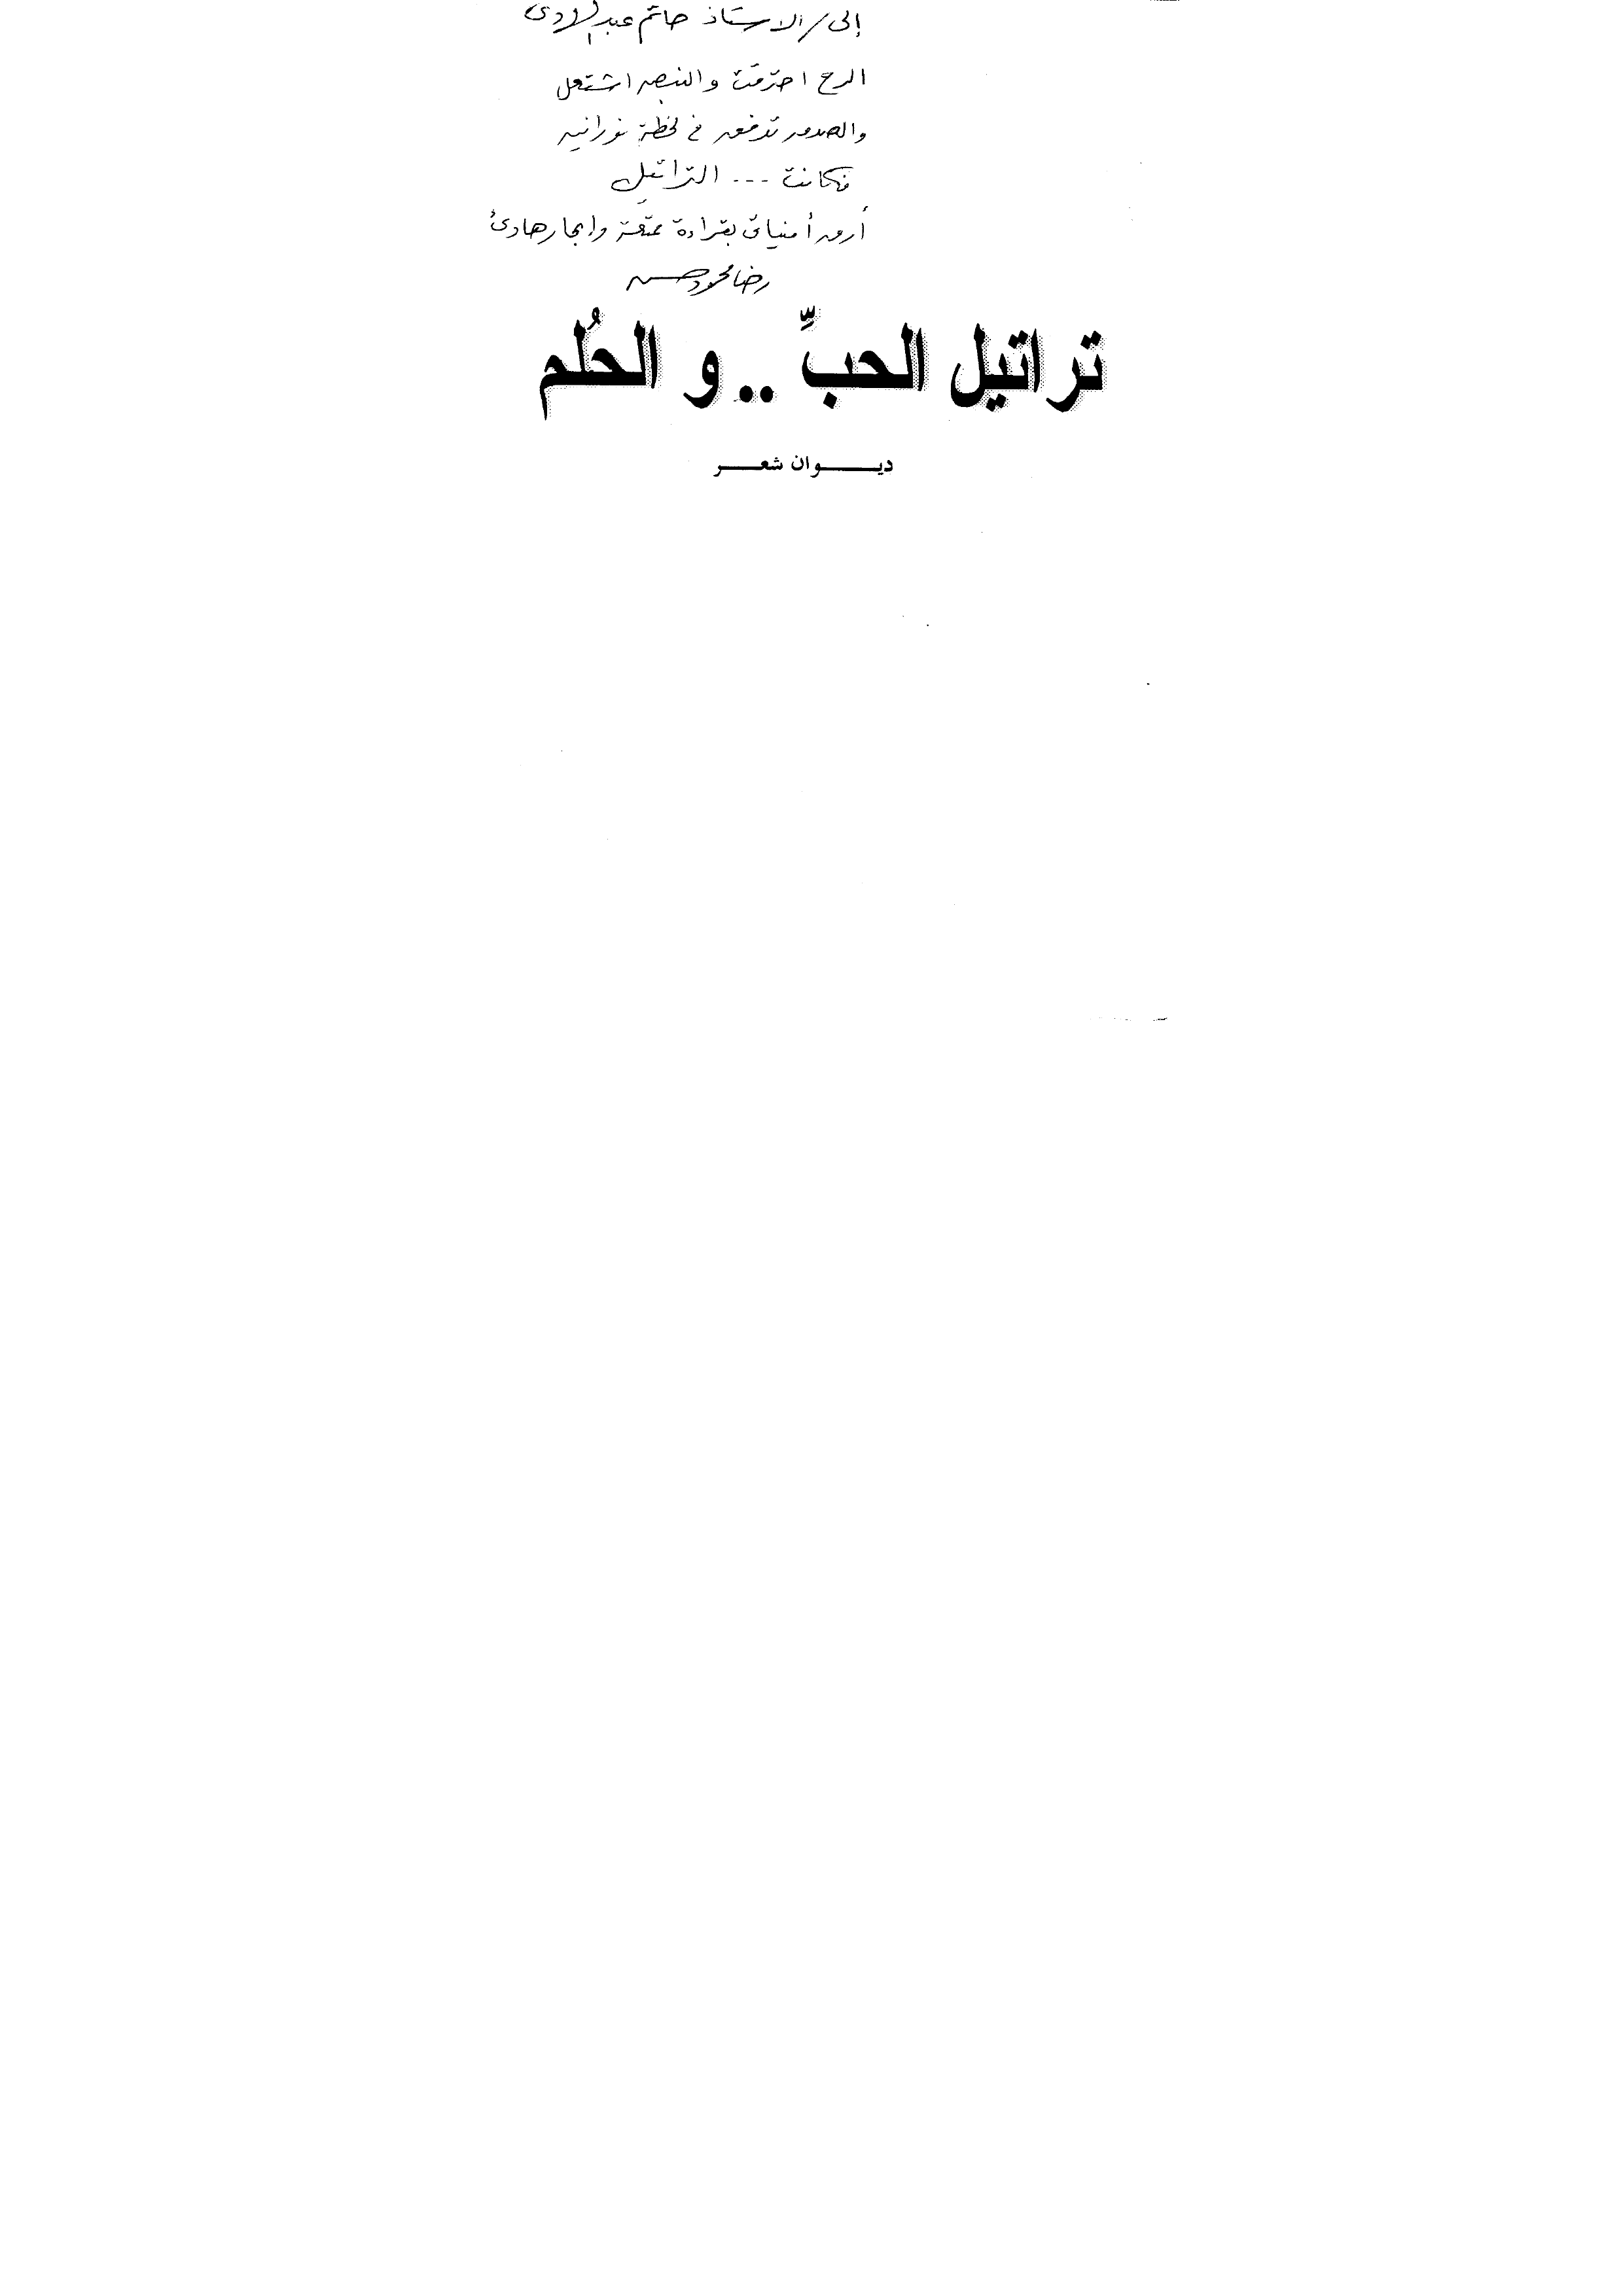 إلى / الاستاذ حاتم عبد الهادى
الروح احترقت والنبض اشتعل
والصدور تدفقت فى لحظة نورانيه
فكانت --- التراتيل
أرق أمنياتى بقراءة ممتعة وإبحار هادئ
رضا محمود حسن
تراتيل الحبِّ .. و الحُلم
ديـــوان شعــر